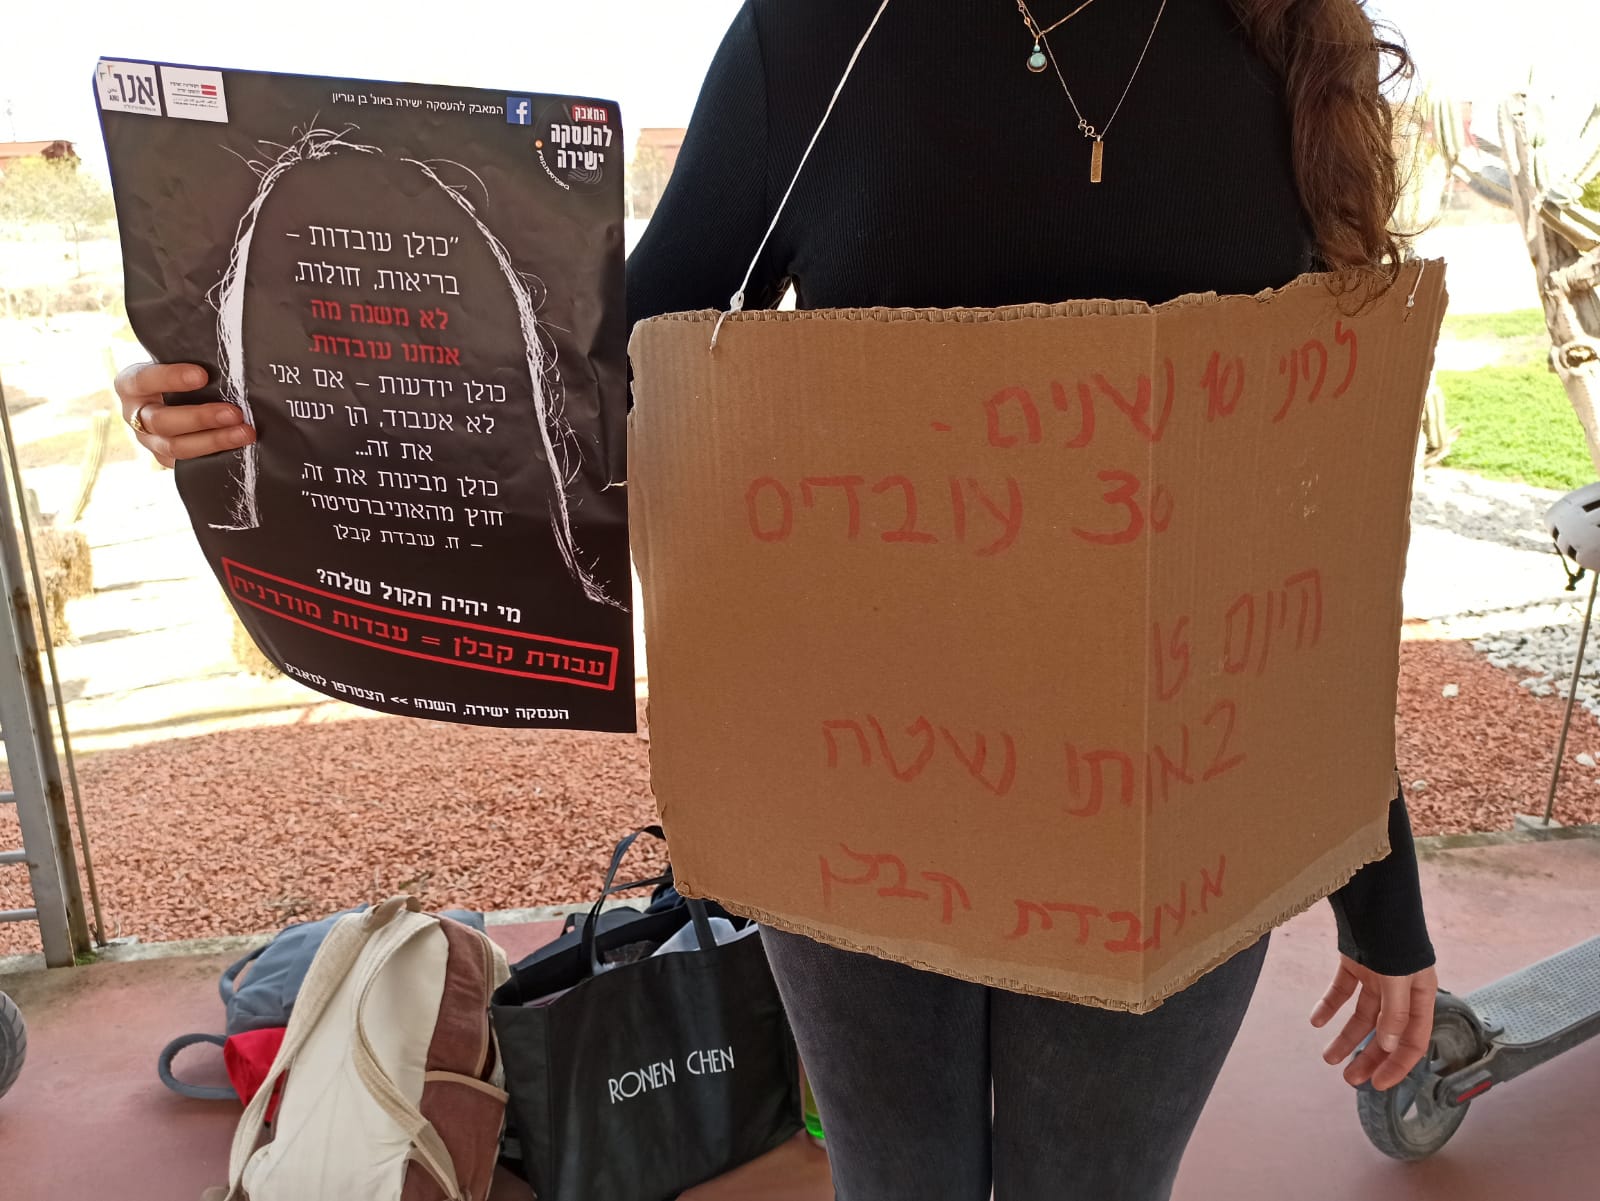 אנו
המאבק להעסקה ישירה באונ' בן גוריון
המאבק
להעסקה
ישירה
"כולן עובדות –
בריאות, חולות,
לא משנה מה
אנחנו עובדות.
כולן יודעות – אם אני
לא אעבוד, הן יעשו
את זה...
כולן מבינות את זה,
חוץ מהאוניברסיטה"
– ח. עובדת קבלן
מי יהיה הקול שלה?
עבודת קבלן = עבדות מודרנית
העסקה ישירה, השנה! >> הצטרפו למאבק
לפני 10 שנים -
30 עובדים
היום
באותו שטח
א. עובדת קבלן
RONEN CHEN